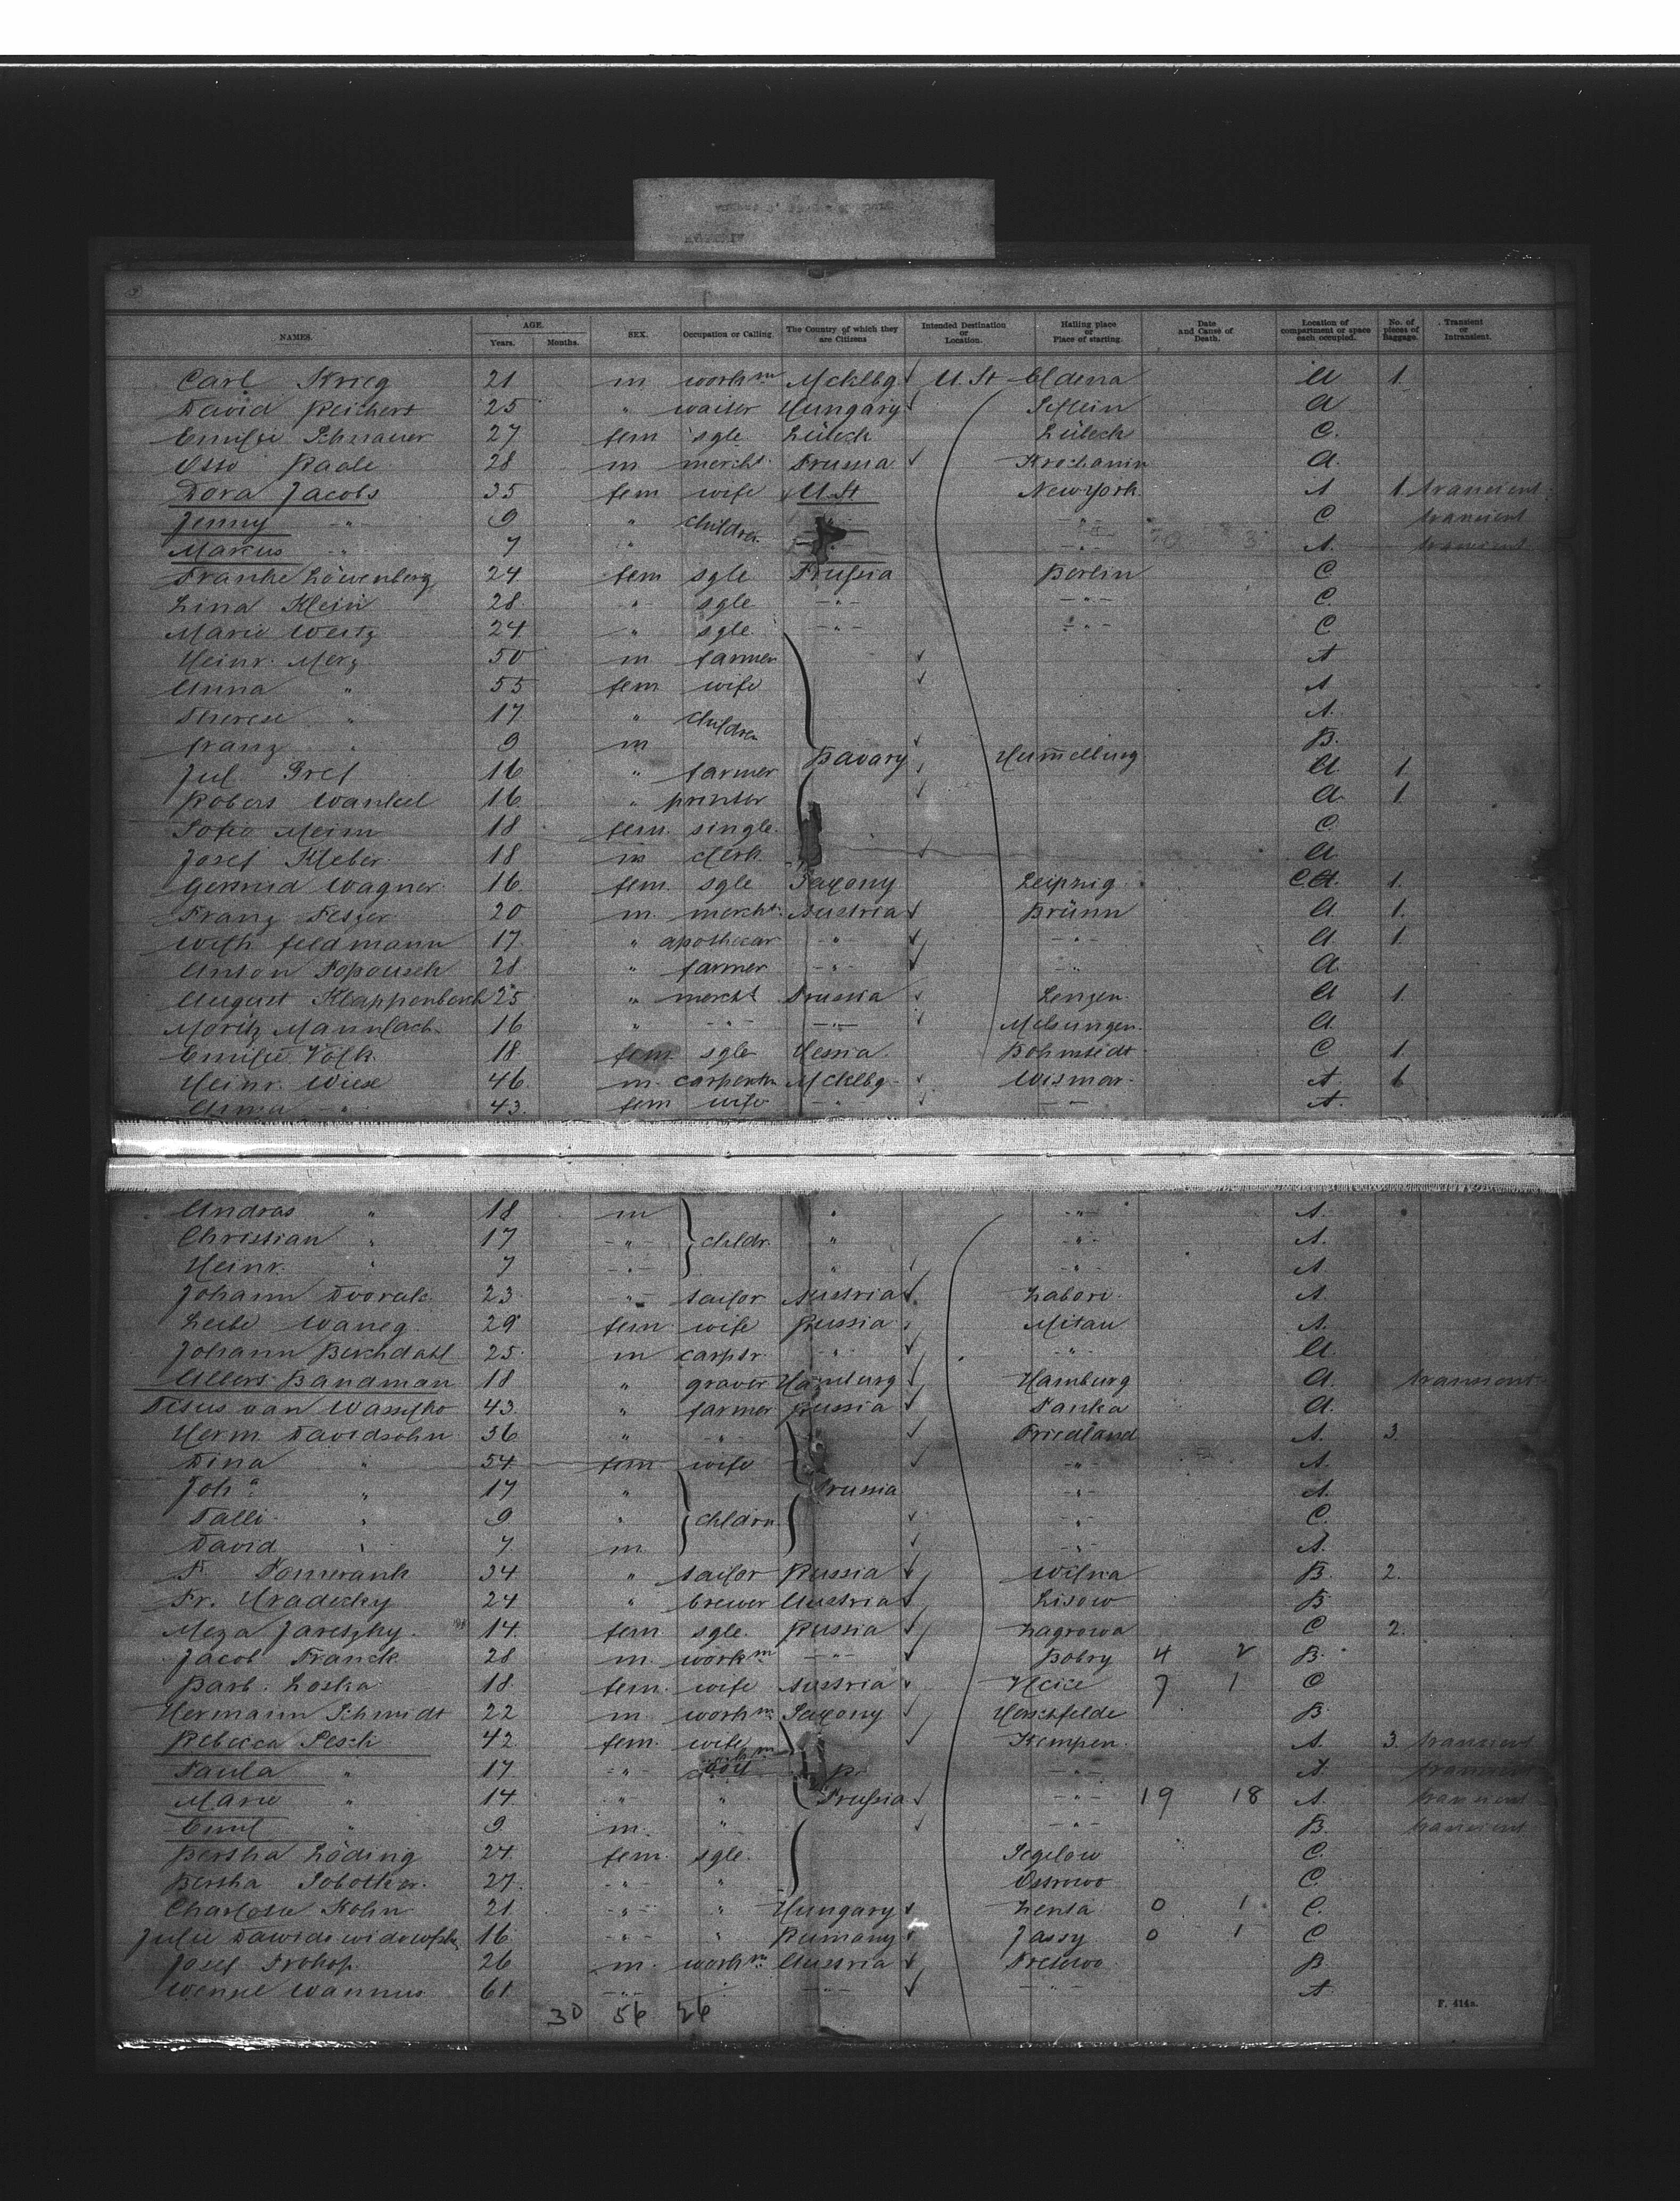 NAMES. AGE. Years. Months. SEX. Occupation or Calling. The Country of which they are Citizens Intended Destination or Location. Hailing place or Place of starting. Date and Cause of Death. Location of compartment or space each occupied. No. of pieces of Baggage. Transient or Intransient.
Carl Krieg 21 m workm Mcklbg U. St Eldena A 1.
David Reichert 25 " waiter Hungary A
Emilie Schnauer 27 fem sgle Lübeck Lübeck C.
Otto Raale 28 m mercht. Prussia Krochanin A.
Dora Jacobs 35 fem wife U. St. New York. A 1. transient
Jenny -"- 9 " children -"- C transient
Marcus -"- 7 " -"- A. transient
Franke Löwenberg 24 fem sgle Prussia Berlin C
Lina Klein 28 -"- sgle -"- -"- C.
Marie Wertz 24 " sgle -"- -"- C
Heinr. Merz 50 m farmer A
Anna " 55 fem wife A
Therese " 17 " children A.
Franz " 9 m B.
Jul. Gref 16 " farmer Bavary Hummelburg A 1.
Robert Wankel 16 " printer A 1.
Sofie Meirn 18 fem. single. C.
Josef Kleber 18 m clerk A
Gertrud Wagner 16 fem. sgle Saxony Leipzig C.A. 1.
Franz Fetzer 20 m. mercht. Austria Brünn A 1.
Wilh Feldmann 17 " apothecar -"- -"- A 1.
Anton Popousek 28 " farmer -"- -"- A
August Klappenbach 25 " mercht Prussia Lenzen A 1.
Moritz Mannlach 16 " -"- -"- Melsungen A
Emilie Völk 18 fem sgle Hessia Bohnstedt C 1.
Heinr. Wiese 46 m. carpenter Mcklbg Wismar A 6
Anna -"- 43 fem wife -"- -"- A.
Andras " 18 m " -"- A.
Christian " 17 -"- childr. " -"- A.
Heinr. " 7 -"- " -"- A
Johann Dvorak 23 -"- tailor Austria Labori A.
Leibe Waneg 29 fem wife Russia Mitau A.
Johann Berchdahl 25 m carptr. -"- -"- A
Albert Bandman 18 " graver Hamburg Hamburg A. transient
Titus van Wassilko 43 " farmer Russia Panka A.
Herm. Davidsohn 56 " -"- Friedland A. 3.
Dina " 54 fem wife -"- A.
Joha " 17 " Prussia -"- A.
Talli " 9 " chldrn " C.
David " 7 m -"- A.
F. Pomerank 34 " tailor Russia Wilna B. 2.
Fr. Hradecky 24 " brewer Austria Lisow B
Meza Jaretzky 14 fem sgle. Russia Lagrowa C 2.
Jacob Franck 28 m. workm -"- Bobry 4 2 B.
Barb. Loska 18 fem. wife Austria 7 1 C
Hermann Schmidt 22 m. workm Saxony Herschfelde B.
Rebecca Pesch 42 fem. wife Kempen A. 3. transient
Paula " 17 -"- -"- A. transient
Marie " 14 -"- " Prussia -"- 19 18 A. transient
Emil " 9 m. " -"- B transient
Bertha Löding 24 fem sgle. Segelow C.
Bertha Sobotker. 27 -"- " Ostrowo C.
Charlotte Kohn 21 -"- " Hungary Lenta 0 1 C.
Julie 16 -"- " Rumany Jassy 0 1 C
Josef Prokop 26 m. workm Austria B.
Wenzel Wannus 61 -"- -"- -"- A
30 56 26
F. 414a.